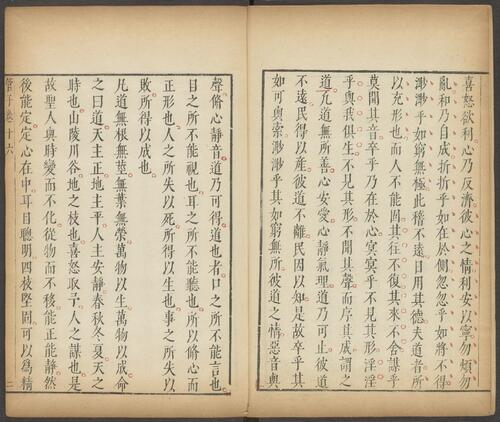 喜怒欲利心乃反濟彼心之情利安以寧勿煩勿
亂和乃自成折折乎如在於側忽忽乎如將不得
渺渺乎如窮無極此稽不遠日用其德夫道者所
以充形也而人不能固其往不復其來不舍謀乎
莫聞其音卒乎乃在於心冥冥乎不見其形淫淫
乎與我俱生不見其形不聞其聲而序其成謂之
道凡道無所善心安愛心靜氣理道乃可止彼道
不遠民得以產彼道不離民因以知是故卒乎其
如可與索渺渺乎其如窮無所彼道之情惡音與
聲脩心靜音道乃可得道也者口之所不能言也
目之所不能視也耳之所不能聽也所以脩心而
正形也人之所失以死所得以生也事之所失以
敗所得以成也
凡道無根無莖無葉無榮萬物以生萬物以成命
之曰道天主正地主平人主安靜春秋冬夏天之
時也山陵川谷地之枝也喜怒取予人之謀也是
故聖人與時變而不化從物而不移能正能靜然
後能定定心在中耳目聰明四枝堅固可以為精
管子卷十六
二